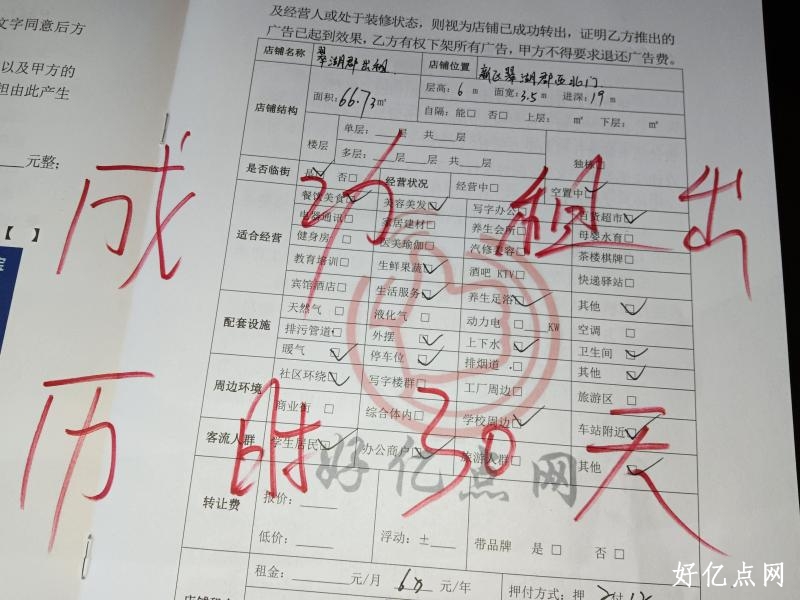 文字同意后方
以及甲方的
担由此产生
元整;
【 】
及经营人或处于装修状态，则视为店铺已成功转出，证明乙方推出的
广告已起到效果，乙方有权下架所有广告，甲方不得要求退还广告费。
店铺名称 翠湖郡出租 店铺位置 翠湖郡西北门
店铺结构 面积:66.73㎡ 层高:6m 面宽:3.5m 进深:19m
自隔:能□ 否□ 上层: ㎡ 下层: ㎡
楼层 单层:___层 共___层 独栋□
多层:___层___层 共___层
是否临街 是☑ 否□ 经营状况 经营中□ 空置中☑
适合经营 餐饮美食☑ 美容美发☑ 写字办公□ 百货超市☑
电器通讯□ 家居建材□ 养生会所□ 母婴水育□
健身房□ 医美瑜伽□ 汽修美容□ 茶楼棋牌□
教育培训□ 生鲜果蔬☑ 酒吧 KTV□ 快递驿站□
宾馆酒店□ 生活服务☑ 养生足浴☑ 其他☑
配套设施 天然气□ 液化气□ 动力电□___KW 空调□
排污管道□ 外摆☑ 上下水☑ 卫生间☑
暖气☑ 停车位☑ 排烟道□ 其他☑
周边环境 社区环绕☑ 写字楼群□ 工厂周边□ 旅游区□
商业街□ 综合体内□ 学校周边☑ 车站附近☑
客流人群 学生居民☑ 办公商户☑ 旅游人群□ 其他☑
转让费 报价:____
低价:____ 浮动:±___ 带品牌 是□ 否□
租金:____元/月 元/年 押付方式:押
成功租出
历时30天
好亿点网
好亿点网